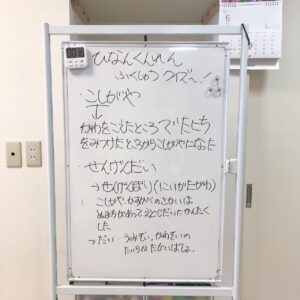 ひなんくんれん
ふくしゅう クイズ〜!
・こしがや
かわをこえたところで たにち
をみつけた ところからこしがやになった
・せんげんだい
→せんげんぼり(にいがたがわ)
こしがや、かすかべのさかいは
ぬまちがあって えどじだいにかんたく
した。
→だい・うみぞい、かわぞいの
たいらな たかいばしょ。
6